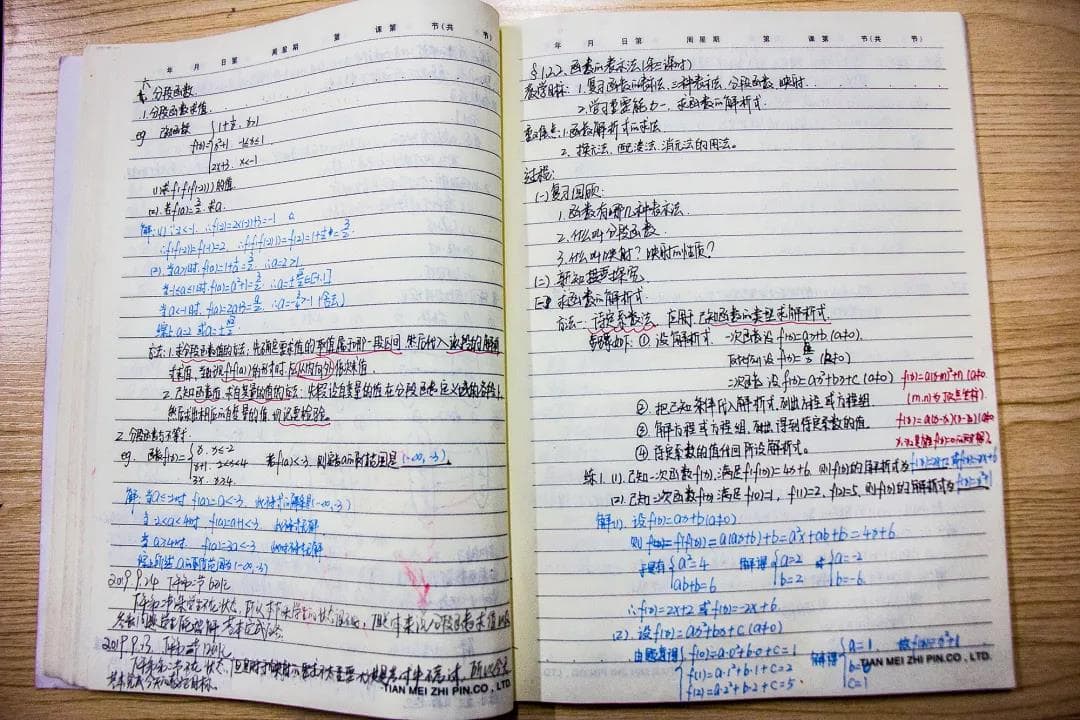 年 月 日第 周星期 第 课第 节(共 节)
六、分段函数
1.分段函数求值
eg 已知函数
f(x)={1+1/x, x>1
x²+1 -1≤x≤1
2x+3, x<-1
(1)求f(f(f(-2)))的值
(2).若f(a)=3/2,求a.
解:(1)∵-2<-1. ∴f(-2)=2×(-2)+3=-1
∴f(f(-2))=f(-1)=2, ∴f(f(f(-2)))=f(2)=1+1/2=3/2.
(2).当a>1时.f(a)=1+1/a=3/2. ∴a=2>1
当-1≤a≤1时.f(a)=a²+1=3/2. ∴a=±√2/2∈[-1,1]
当a<-1时. f(a)=2a+3=3/2. ∴a=-3/4>-1 (舍去)
综上a=2 或a=±√2/2
方法:1.求分段函数值的方法:先确定要求值的 属于哪一段区间,然后代入该段的解析
式求值,当出现f(f(a))的形式时,应从内向外依次求值.
2.已知函数值,求自变量的值的方法:先假设自变量的值在分段函数定义域的各段上
然后求出相应的自变量的值,切记要检验.
2.分段函数与不等式.
eg. 函数f(x)={x. x≤-2
x+1. -2<x<4
3x. x≥4
若f(a)<-3. 则 a的取值范围是(-∞,-3).
解:当a≤-2时 f(a)=a<-3. (-∞,-3)
当-2<a<4时 f(a)=a+1<-3. 此时无解
当a≥4时. f(a)=3a<-3 此时无解
综上所述a的取值范围为(-∞,-3)
2019.9.24 下午
2019.9.23. 下午
TIAN MEI ZHI PIN.CO , LTD.
年 月 日第 周星期 第 课第 节(共 节)
§1.2.2.函数的表示法(第三课时)
教学目标: 1.复习函数的表示法,三种表示法.分段函数.映射.
2.学习重要能力一:求函数的解析式.
重难点:1.函数解析式的求法.
2. 换元法、配凑法、消元法的用法.
过程:
(一)复习回顾:
1.函数有哪几种表示法.
2.什么叫分段函数.
3.什么叫映射?映射的性质?
(二) 新知探究
求函数的解析式.
方法一:待定系数法. 应用:已知函数的类型求解析式.
步骤如下: ① 设解析式. 一次函数设f(x)=ax+b(a≠0).
反比例函数 设f(x)=k/x(k≠0)
二次函数 设f(x)=ax²+bx+c(a≠0) f(x)=a(x-m)²+n (a≠0.
② 把已知条件代入解析式.列出方程或方程组. (m,n)为顶点坐标)
③ 解方程或方程组,得到待定系数的值. f(x)=a(x-x₁)(x-x₂)(a≠0
④ 将待定系数的值代回所设解析式. x₁,x₂是
练1.(1).已知一次函数f(x).满足f(f(x))=4x+6. 则f(x)的解析式为f(x)=2x+2 或f(x)=-2x-6
(2).已知二次函数f(x)满足f(0)=1, f(1)=2, f(2)=5, 则f(x)的解析式为f(x)=x²+1
解(1).设f(x)=ax+b(a≠0)
则 f(f(x))=a(ax+b)+b=a²x+ab+b=4x+6
于是有{a²=4 解得{a=2 或{a=-2
ab+b=6 b=2 b=-6.
∴f(x)=2x+2 或f(x)=-2x-6.
(2). 设f(x)=ax²+bx+c(a≠0)
由题意得{f(0)=a·0²+b·0+c=1 解得{a=1. 故f(x)=x²+1
f(1)=a·1²+b·1+c=2 b=0
f(2)=a·2²+b·2+c=5. c=1
TIAN MEI ZHI PIN.CO , LTD.